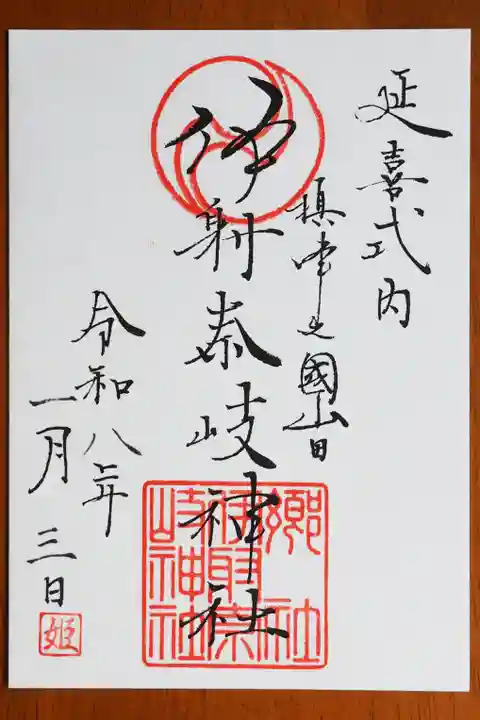 延喜式内
摂津之國山田
伊射奈岐神社
令和八年
一月三日
姫
鄕社
伊射奈
岐神社